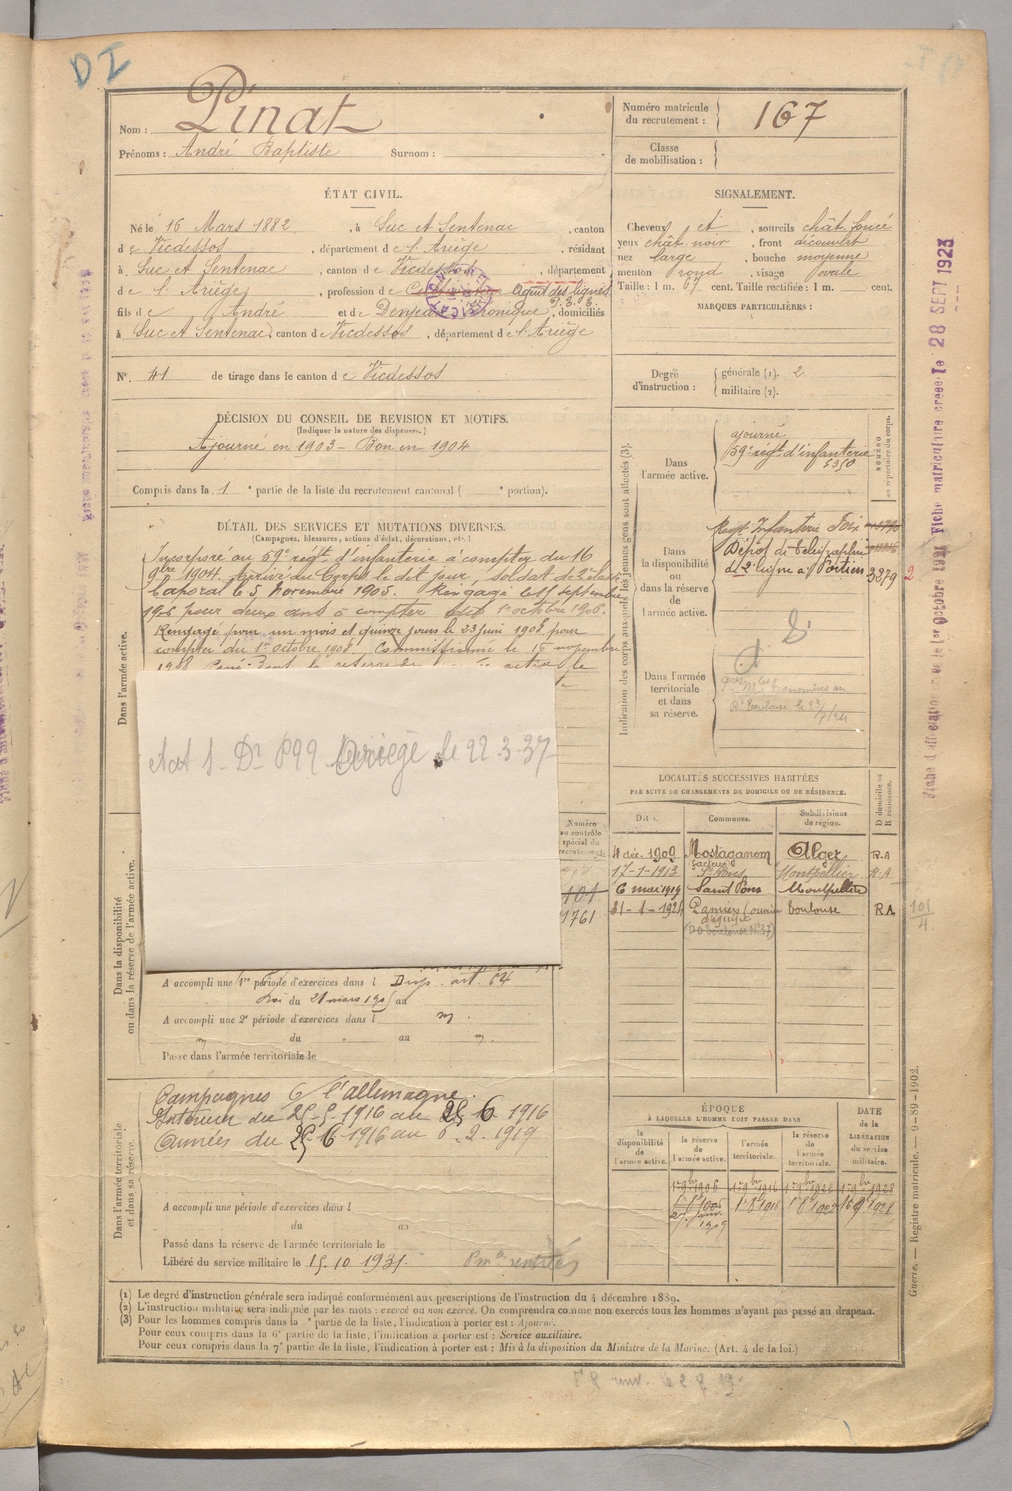 DI
Nom : Pinat
Prénoms : André Baptiste Surnom :
Numéro matricule du recrutement : 167
Classe de mobilisation :
ÉTAT CIVIL.
Né le 16 Mars 1882, à Suc et Sentenac, canton
de Vicdessos, département de l'Ariège, résidant
à Suc et Sentenac, canton de Vicdessos, département
de l'Ariège, profession de Agent des lignes
fils de André et de Denjean Véronique, domiciliés
à Suc et Sentenac, canton de Vicdessos, département de l'Ariège
N°. 41 de tirage dans le canton de Vicdessos
SIGNALEMENT.
Cheveux et, sourcils chât foncé
yeux chât noir, front découvert
nez large, bouche moyenne
menton rond, visage ovale
Taille : 1 m. 67 cent. Taille rectifiée : 1 m. cent.
MARQUES PARTICULIÈRES :
Degré d'instruction : générale (1). 2
militaire (2).
DÉCISION DU CONSEIL DE REVISION ET MOTIFS.
(Indiquer la nature des dispenses.)
Ajourné en 1903 – Bon en 1904
Compris dans la 1e partie de la liste du recrutement cantonal ( e portion).
DÉTAIL DES SERVICES ET MUTATIONS DIVERSES.
(Campagnes, blessures, actions d'éclat, décorations, etc.)
Dans l'armée active.
Incorporé au 59e régt d'infanterie à compter du 16
9bre 1904. Arrivé au Corps le dit jour, soldat de 2e classe
Caporal le 5 Novembre 1905. Rengagé le 15 septembre
1906 pour deux ans à compter du 1er octobre 1906.
Rengagé pour un mois et quinze jours le 23 juin 1908 pour
compter du 1er octobre 1908. Commissionné le 15 novembre
Act 1 – Dr P99 Ariège le 22-3-37
Numéro au contrôle spécial du recrutement.
101
1761
Dans la disponibilité ou dans la réserve de l'armée active.
A accompli une 1re période d'exercices dans l Disp. art. 64
Loi du 21 mars 190 au
A accompli une 2e période d'exercices dans l
du au
Passé dans l'armée territoriale le
Dans l'armée territoriale et dans sa réserve.
Campagnes C/ l'allemagne.
Intérieur du 25-5-1916 au 25 6 1916
Armées du 25-6 1916 au 8-2-1919
A accompli une période d'exercices dans l
du au
Passé dans la réserve de l'armée territoriale le
Libéré du service militaire le 15.10 1931.
Indication des corps auxquels les jeunes gens sont affectés (3).
NUMÉRO au répertoire du corps.
Dans l'armée active.
ajourné
59e régt d'infanterie
5350
Dans la disponibilité ou dans la réserve de l'armée active.
Régt Infanterie Foix
Dépôt de télégraphie
de 2e ligne à Poitiers 3279 2
Dans l'armée territoriale et dans sa réserve.
LOCALITÉS SUCCESSIVES HABITÉES
PAR SUITE DE CHANGEMENTS DE DOMICILE OU DE RÉSIDENCE.
Dates. Communes. Subdivisions de région. D domicile ou R résidence.
4 déc. 1909 Mostaganem Alger R.A
17-1-1913 facteur St Pons Montpellier R.A
6 mai 1919 Saint Pons Montpellier
31-1-1921 Pamiers (ouvrier d'équipe) Toulouse R A
101/4
ÉPOQUE
À LAQUELLE L'HOMME DOIT PASSER DANS
la disponibilité de l'armée active. la réserve de l'armée active. l'armée territoriale. la réserve de l'armée territoriale. DATE de la LIBÉRATION du service militaire.
(1) Le degré d'instruction générale sera indiqué conformément aux prescriptions de l'instruction du 4 décembre 1889.
(2) L'instruction militaire sera indiquée par les mots : exercé ou non exercé. On comprendra comme non exercés tous les hommes n'ayant pas passé au drapeau.
(3) Pour les hommes compris dans la e partie de la liste, l'indication à porter est : Ajourné.
Pour ceux compris dans la 6e partie de la liste, l'indication à porter est : Service auxiliaire.
Pour ceux compris dans la 7e partie de la liste, l'indication à porter est : Mis à la disposition du Ministre de la Marine. (Art. 4 de la loi.)
Fiche d'affectation créée le 1er Octobre 1921 Fiche matriculaire créée le 28 SEPT 1923
Guerre. — Registre matricule. — 9-89-1902.